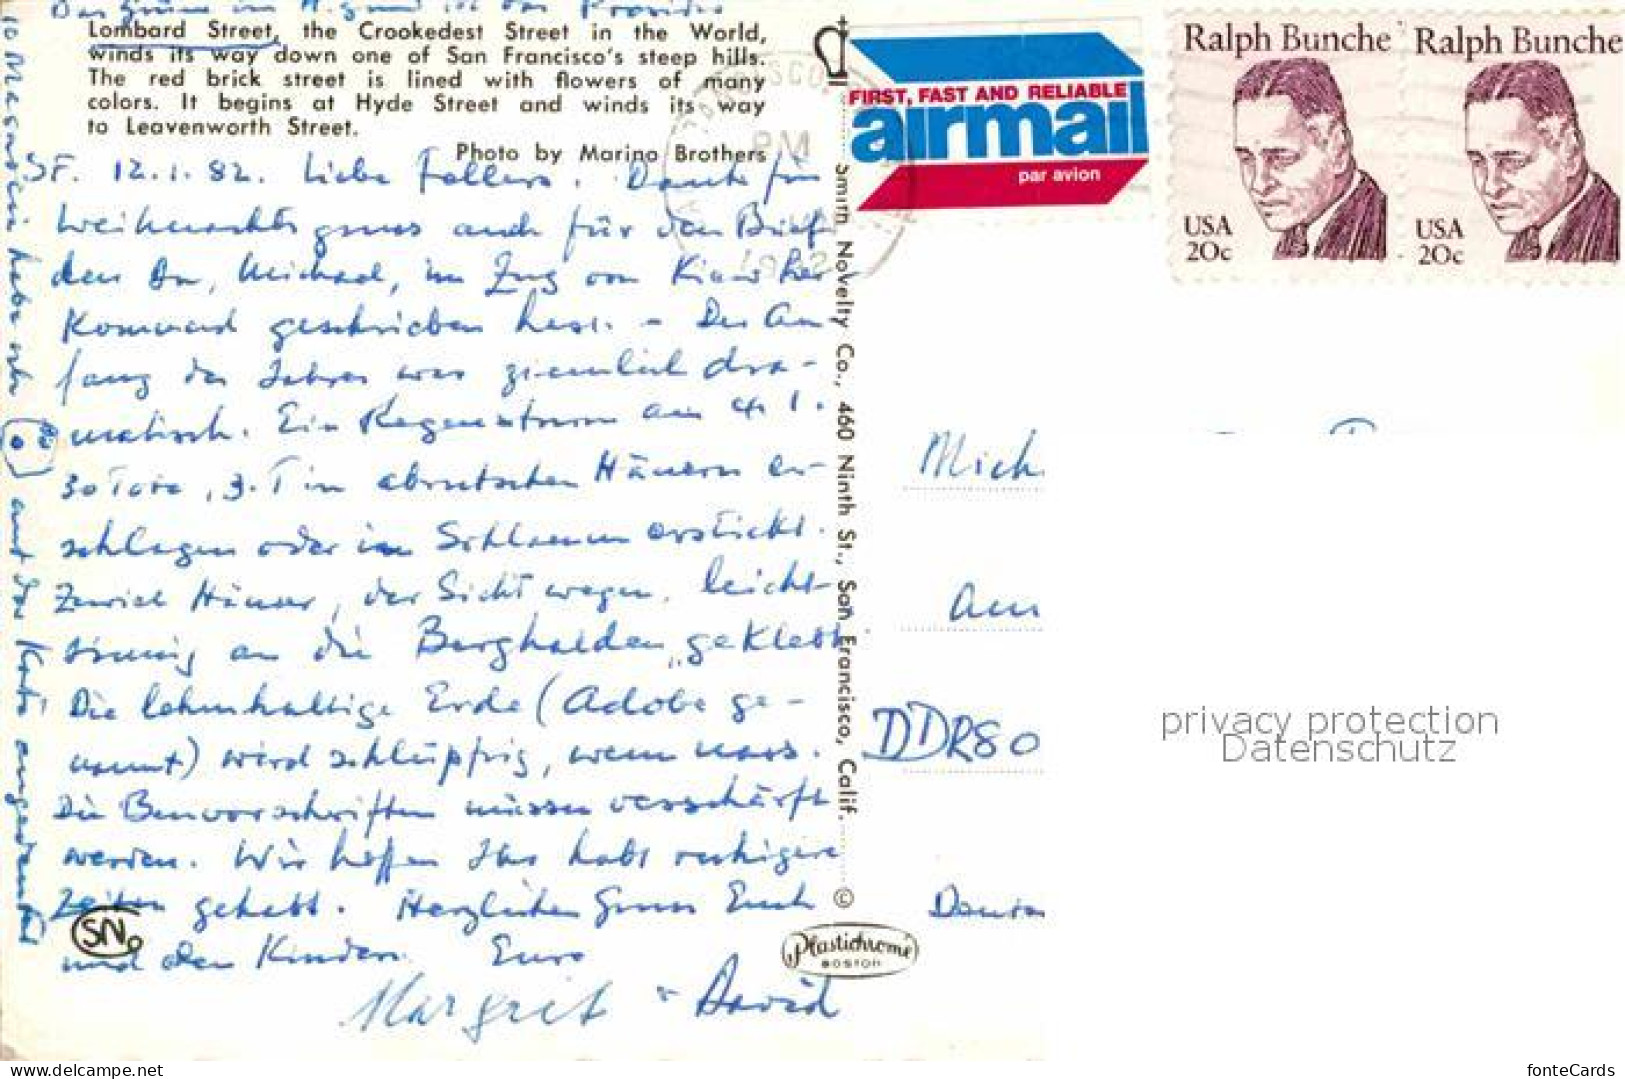 Das Grüne im H.grund ist das Presidio
Lombard Street, the Crookedest Street in the World,
winds its way down one of San Francisco's steep hills.
The red brick street is lined with flowers of many
colors. It begins at Hyde Street and winds its way
to Leavenworth Street.
Photo by Marino Brothers
SF. 12.1.82. Liebe Fellers. Dank für
Weihnachtsgruss auch für den Brief
den Du, Michael, im Zug von
Kommend geschrieben hast. - Der An
fang des Jahres war ziemlich dra-
matisch. Ein Regensturm am 4.1.
30 Tote, z.T in abrutschen Häusern er-
schlagen oder im Schlamm erstickt.
Zuviel Häuser, der Sicht wegen, leicht-
sinnig an die Berghalden "geklebt
Die lehmhaltige Erde (Adobe ge-
nannt) wird schlüpfrig, wenn nass.
Die Bauvorschriften müssen verschärft
werden. Wir hoffen Ihr habt ruhigere
Zeiten gehabt. Herzlichen Gruss Euch
und den Kindern. Eure
Margrit + David
habe ich auf der Karte angedeutet
SN
Smith Novelty Co., 460 Ninth St., San Francisco, Calif.
©
Plastichrome
BOSTON
FIRST, FAST AND RELIABLE
airmail
par avion
PM
Ralph Bunche
USA
20c
Ralph Bunche
USA
20c
Mich
Am
DDR80
privacy protection
Datenschutz
www.delcampe.net
fonteCards